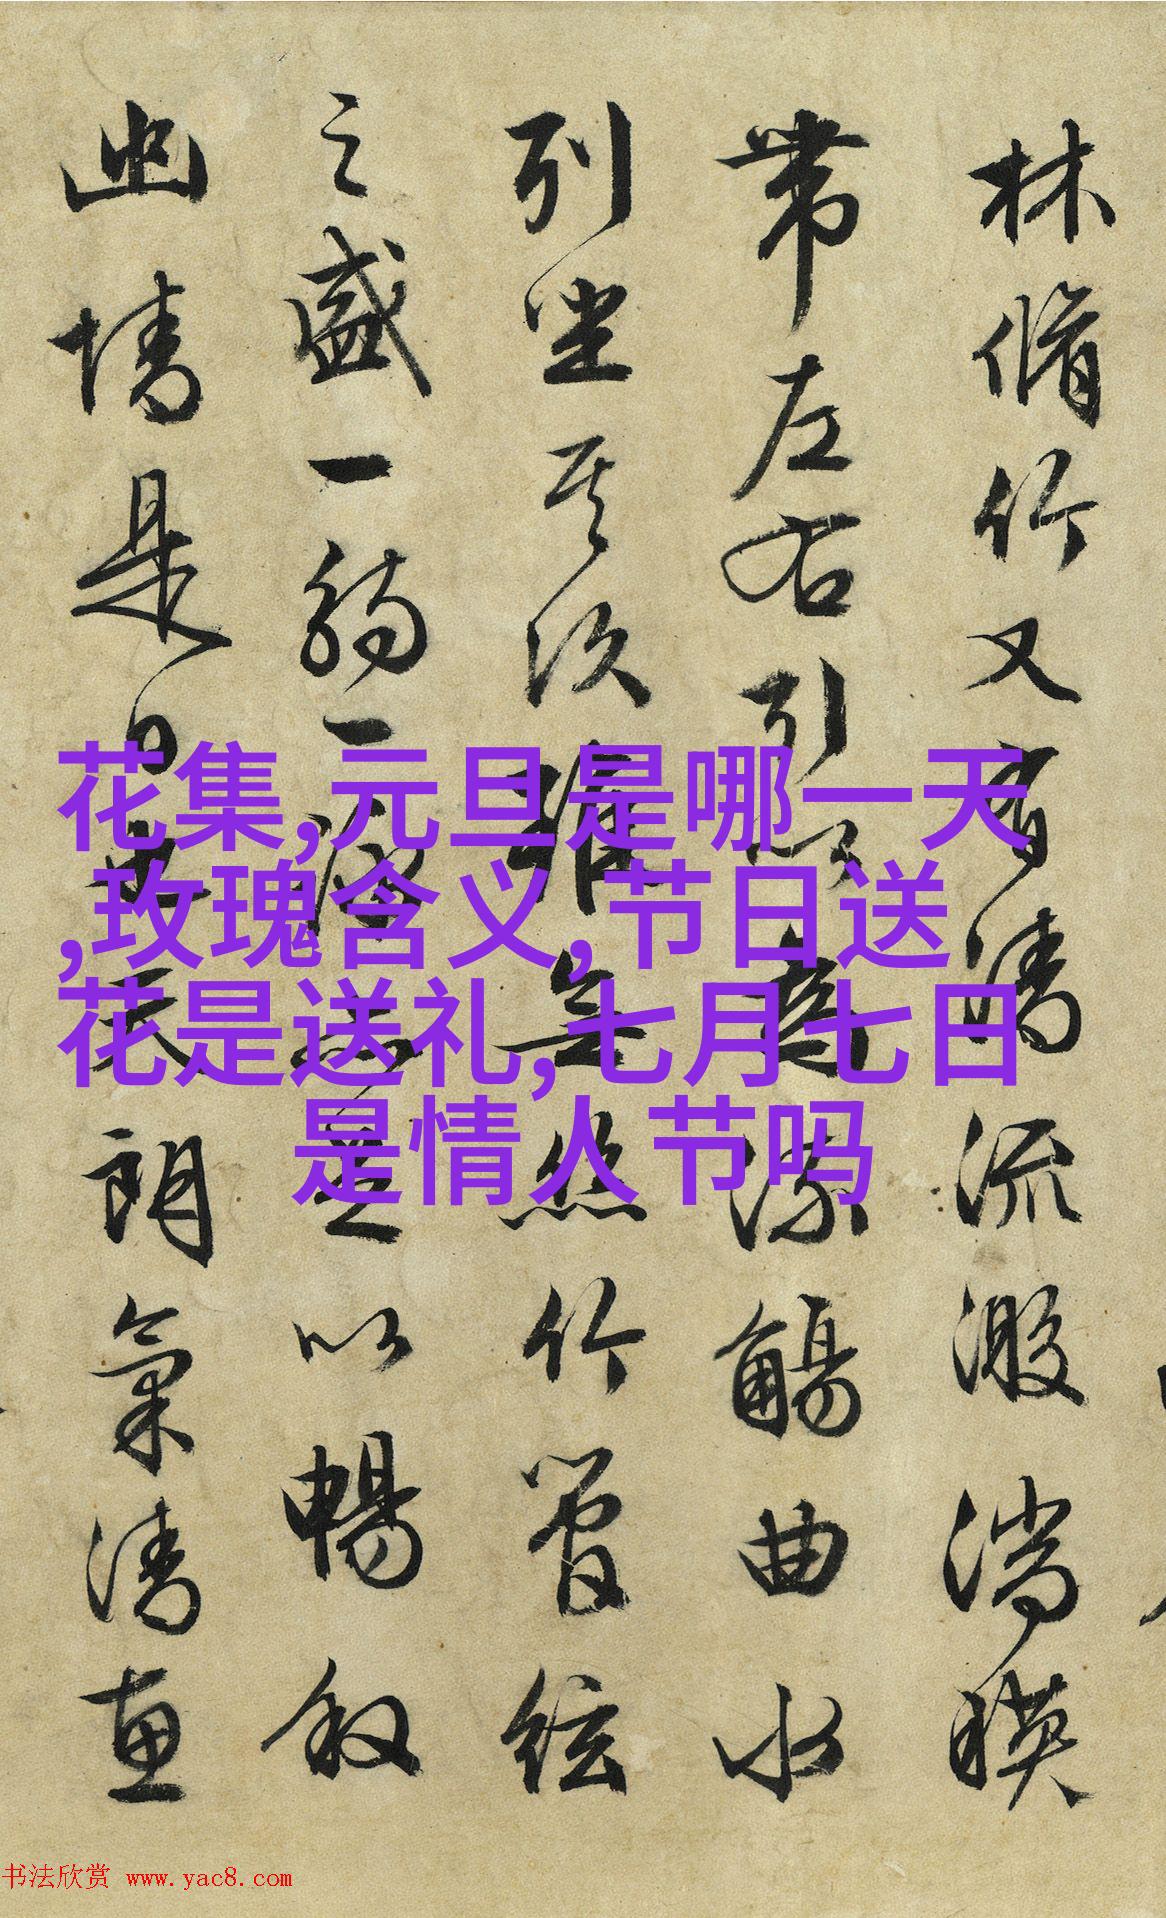 林脩竹又有清流激湍暎
帶左右引以為流觴曲水
列坐其次雖無絲竹管絃
之盛一觴一詠亦足以暢敘
幽情是日也天朗氣清惠
花集,元旦是哪一天
,玫瑰含义,节日送
花是送礼,七月七日
是情人节吗
书法欣赏 www.yac8.com